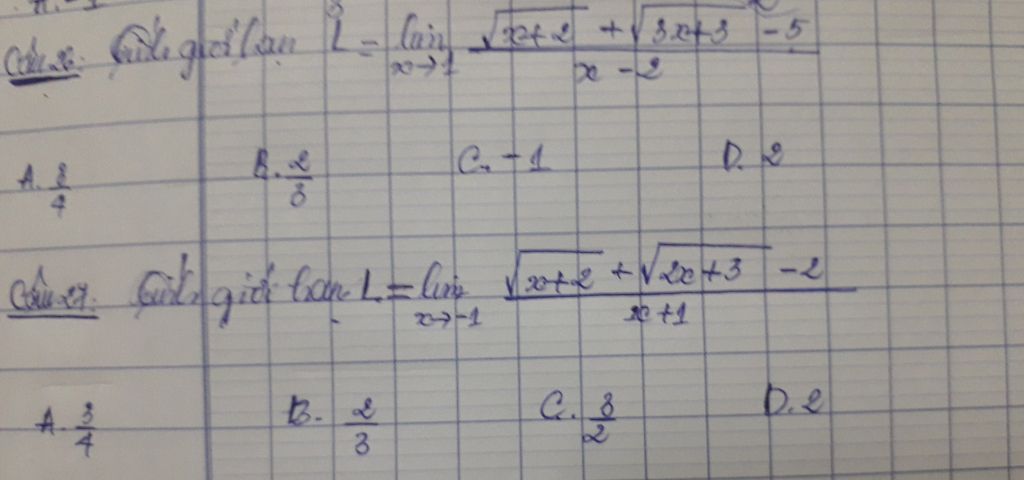 Câu 26. Tính giới hạn L = lim x→1 (√(x+2) + √(3x+3) - 5)/(x - 2)
A. 3/4 B. 2/3 C. -1 D. 2
Câu 27. Tính giới hạn L = lim x→-1 (√(x+2) + √(2x+3) - 2)/(x+1)
A. 3/4 B. 2/3 C. 3/2 D. 2